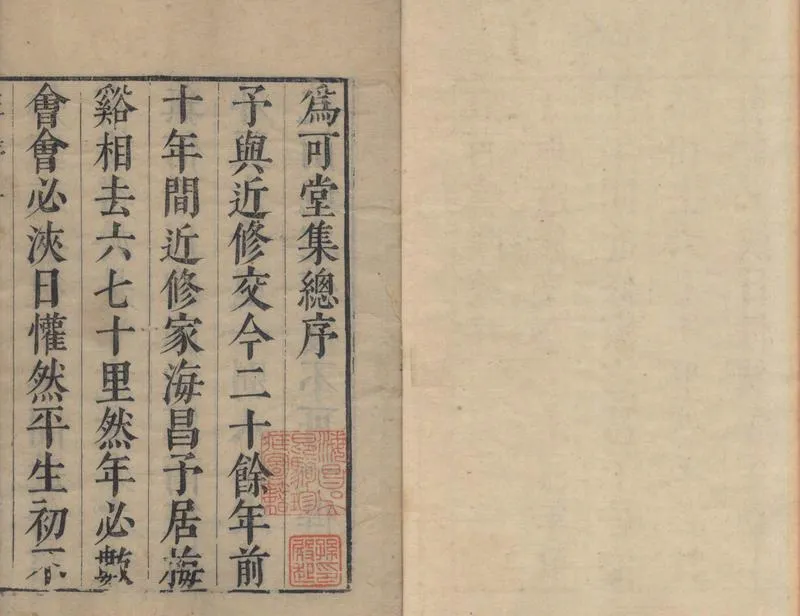 爲可堂集總序
予與近修交今二十餘年前
十年間近修家海昌予居梅
谿相去六七十里然年必數
會會必浹日懽然平生初不